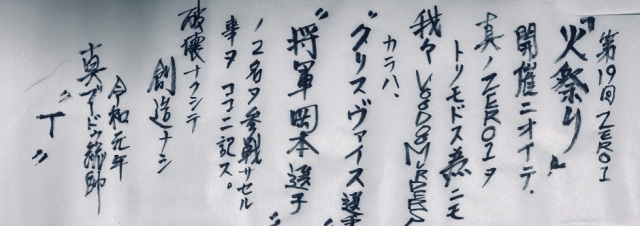 第19回ZERO1
"火祭り"
開催ニオイテ、
真ノZERO1ヲ
トリモドス為ニモ
我々VOODOO MURDERS
カラハ、
"クリスヴァイス選手"
"将軍岡本選手"
ノ2名ヲ参戦サセル
事ヲココニ記ス。
破壊ナクシテ
創造ナシ
令和元年
真ブードゥー総帥
"T"